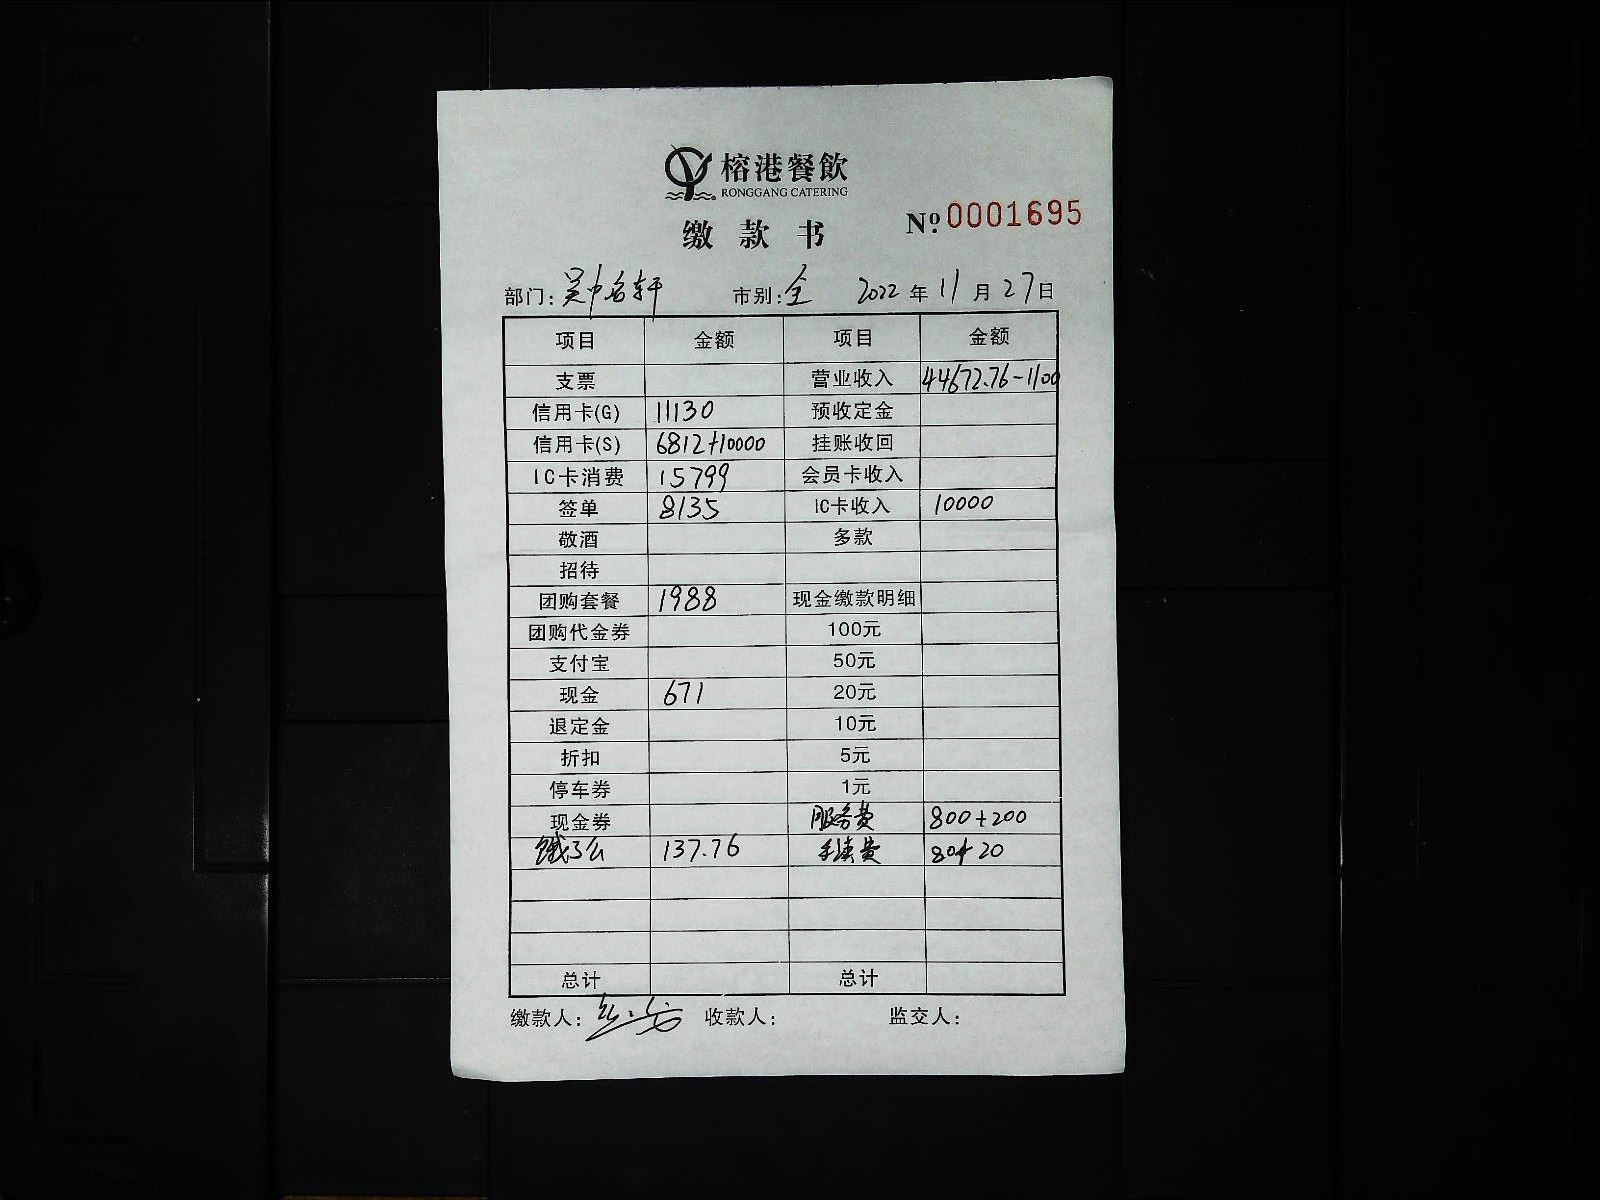 榕港餐飲
RONGGANG CATERING
缴款书
Nº:0001695
部门:吴中名轩 市别:全 2022年11月27日
项目 金额 项目 金额
支票 营业收入 44672.76-1100
信用卡(G) 11130 预收定金
信用卡(S) 6812+10000 挂账收回
IC卡消费 15799 会员卡收入
签单 8135 IC卡收入 10000
敬酒 多款
招待
团购套餐 1988 现金缴款明细
团购代金券 100元
支付宝 50元
现金 671 20元
退定金 10元
折扣 5元
停车券 1元
现金券 服务费 800+200
饿了么 137.76 手续费 80+20
总计 总计
缴款人: 收款人: 监交人: